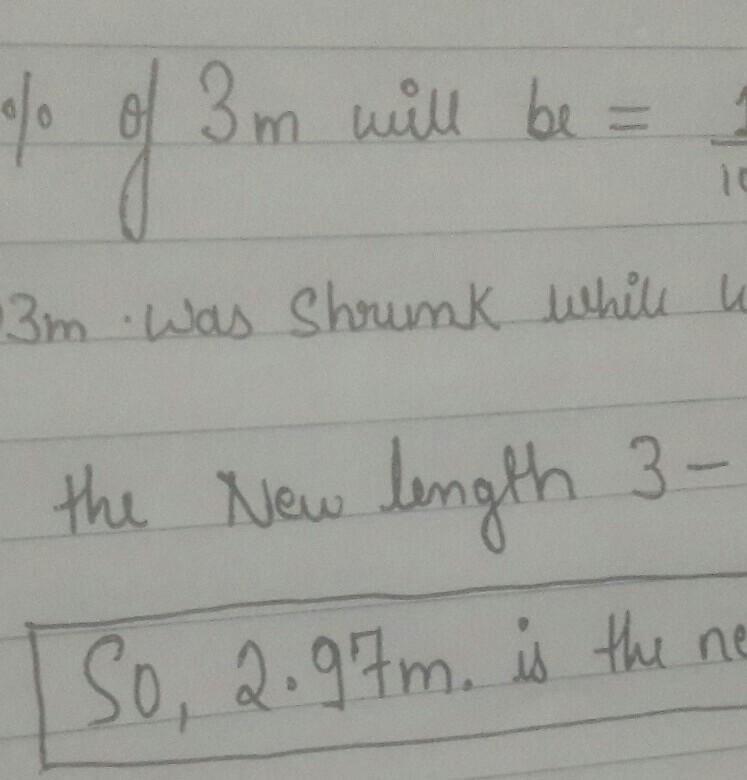 % of 3m will be = 1/10
3m. was Shrumk while
the New length 3 -
So, 2.97m. is the ne